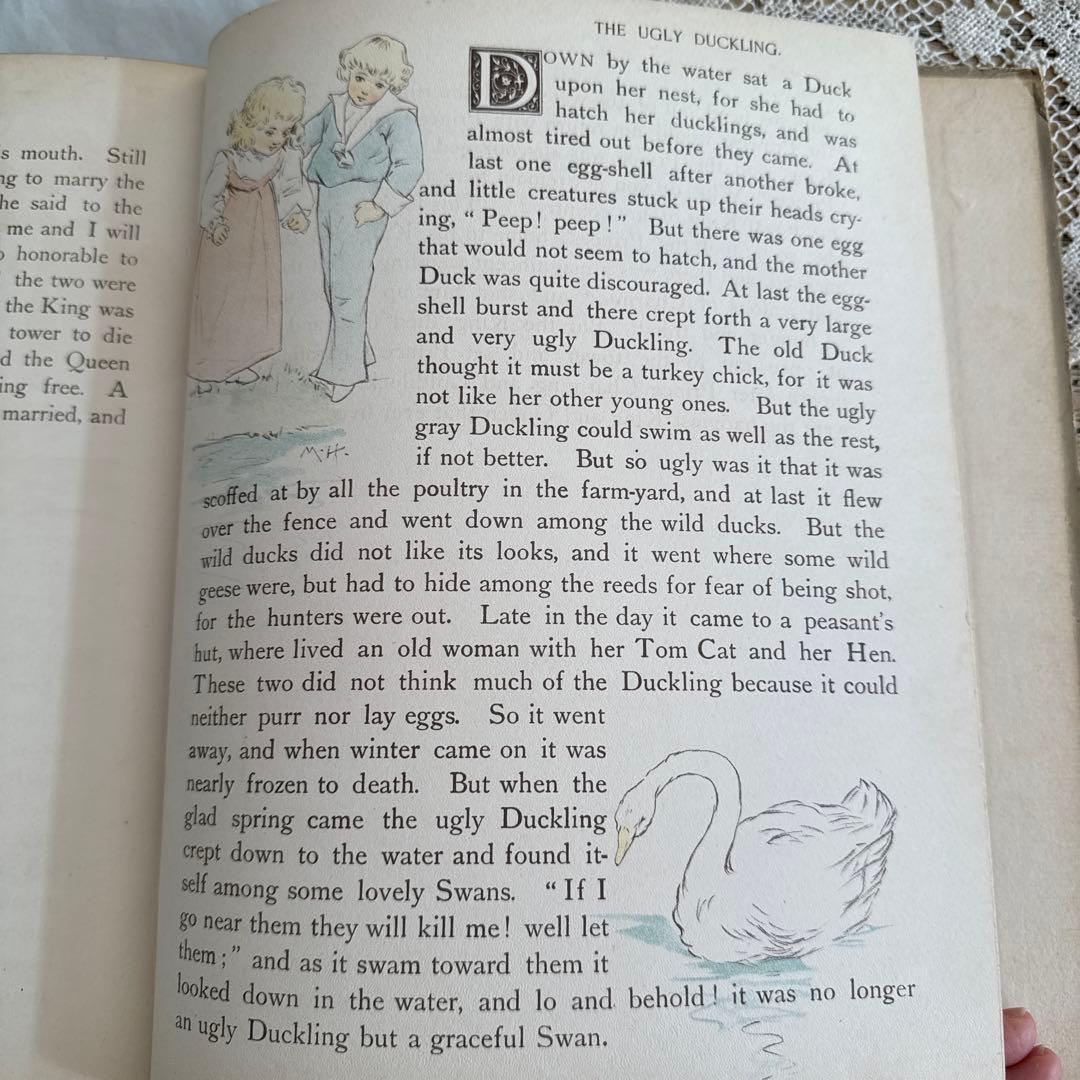 s mouth. Still
ng to marry the
he said to the
me and I will
honorable to
the two were
the King was
tower to die
d the Queen
ing free. A
married, and
THE UGLY DUCKLING.
DOWN by the water sat a Duck
upon her nest, for she had to
hatch her ducklings, and was
almost tired out before they came. At
last one egg-shell after another broke,
and little creatures stuck up their heads cry-
ing, “Peep! peep!” But there was one egg
that would not seem to hatch, and the mother
Duck was quite discouraged. At last the egg-
shell burst and there crept forth a very large
and very ugly Duckling. The old Duck
thought it must be a turkey chick, for it was
not like her other young ones. But the ugly
gray Duckling could swim as well as the rest,
if not better. But so ugly was it that it was
M·H.
scoffed at by all the poultry in the farm-yard, and at last it flew
over the fence and went down among the wild ducks. But the
wild ducks did not like its looks, and it went where some wild
geese were, but had to hide among the reeds for fear of being shot,
for the hunters were out. Late in the day it came to a peasant's
hut, where lived an old woman with her Tom Cat and her Hen.
These two did not think much of the Duckling because it could
neither purr nor lay eggs. So it went
away, and when winter came on it was
nearly frozen to death. But when the
glad spring came the ugly Duckling
crept down to the water and found it-
self among some lovely Swans. “If I
go near them they will kill me! well let
them;” and as it swam toward them it
looked down in the water, and lo and behold! it was no longer
an ugly Duckling but a graceful Swan.